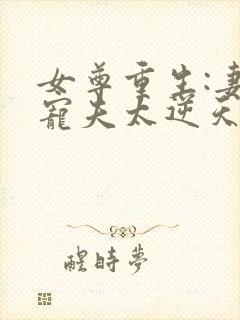 女尊重生:妻
寵夫太逆天
醒時夢